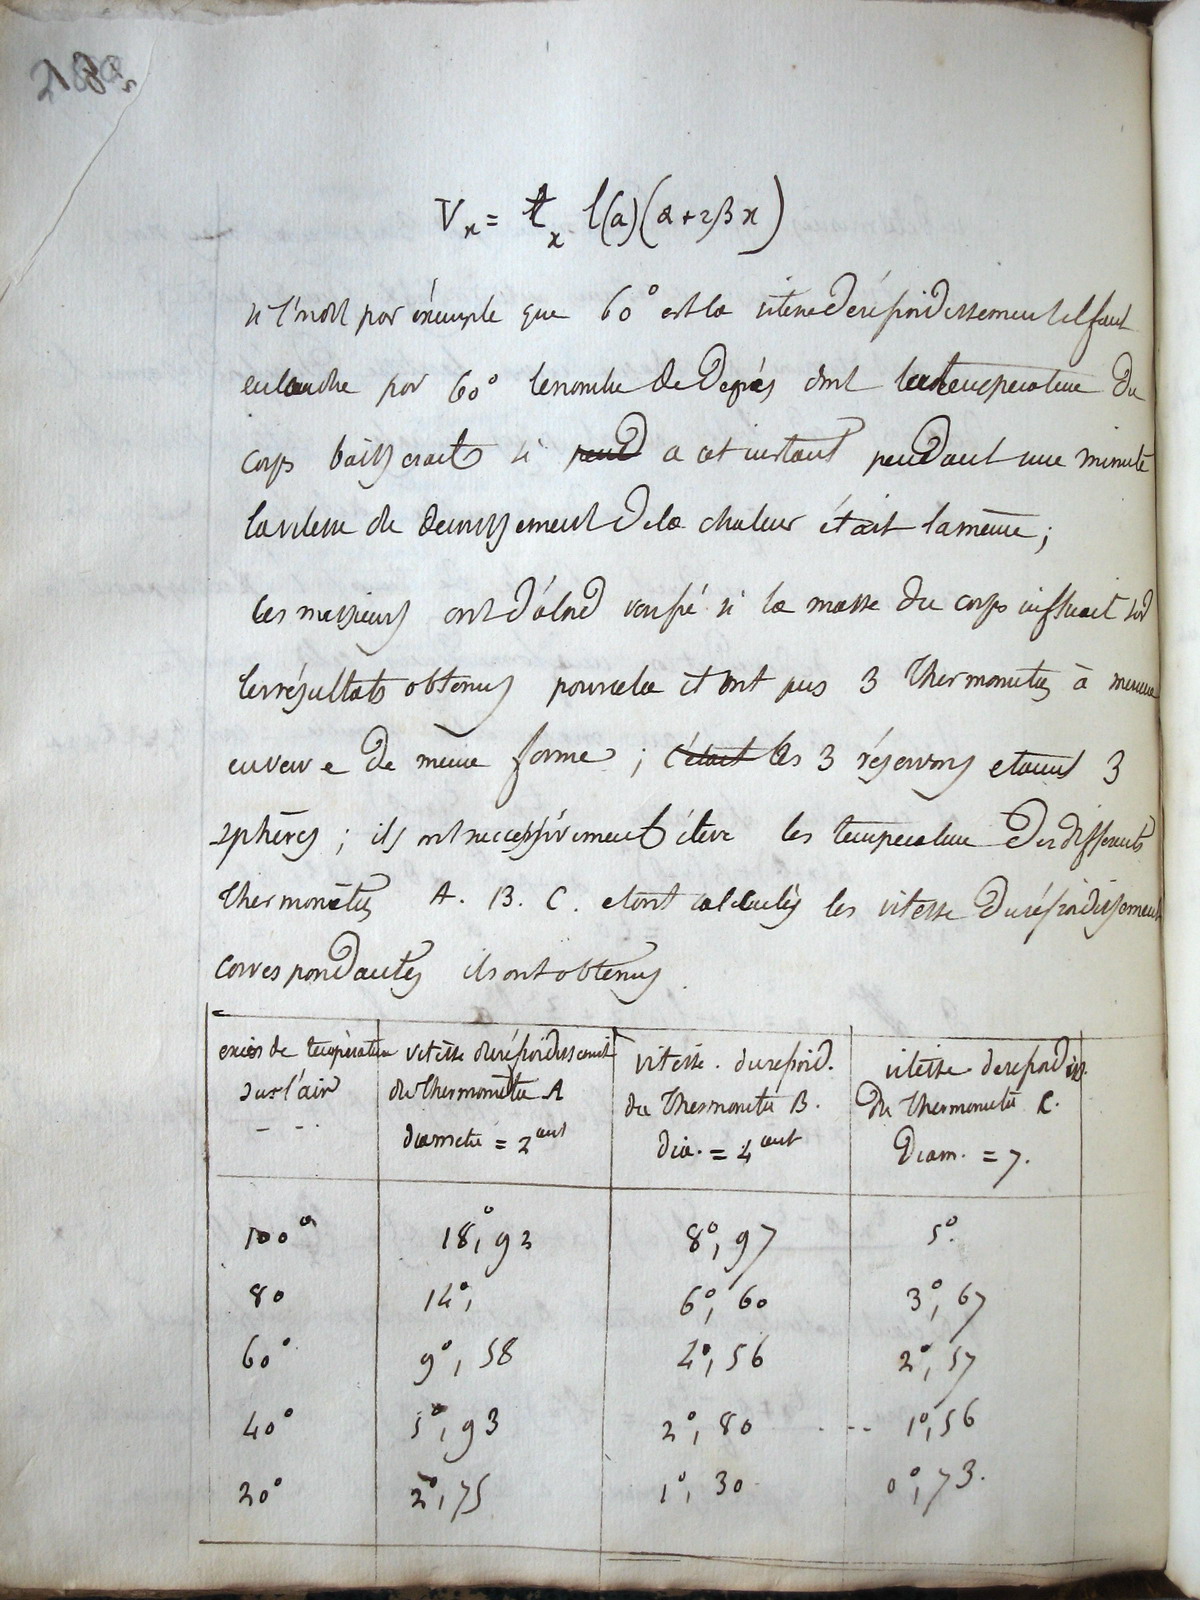 V_x = t_x l(a)(α+2βx)
si l'on dit par éxemple que 60° est la vitesse de réfroidissement il faut
entendre par 60° le nombre de Degrés dont la température du
corps baisserait si pend a cet instant pendant une minute
la vitesse de decroissement de la chaleur était la même ;
les messieurs ont d'abord vérifié si la masse du corps influait sur
les résultats obtenus pour cela il ont pris 3 thermometres à mercure
de même forme ; c'était les 3 réservoirs etaient 3
sphères ; ils ont successivement élevé les température des differents
thermomètres A. B. C. et ont calculés les vitesse du réfroidissement
correspondantes ils ont obtenus.
excès de température vitesse du réfroidissement vitesse. du refroid. vitesse de refroidiss.
sur l'air du thermomètre A du thermometre B. du thermometre C.
diametre = 2 cent dia. = 4 cent Diam. = 7.
100° 18°, 92 8°, 97 5°.
80 14°, 6°, 60 3°, 67
60° 9°, 58 4°, 56 2°, 57
40° 5°, 93 2°, 80 1°, 56
20° 2°, 75 1°, 30 0°, 73.